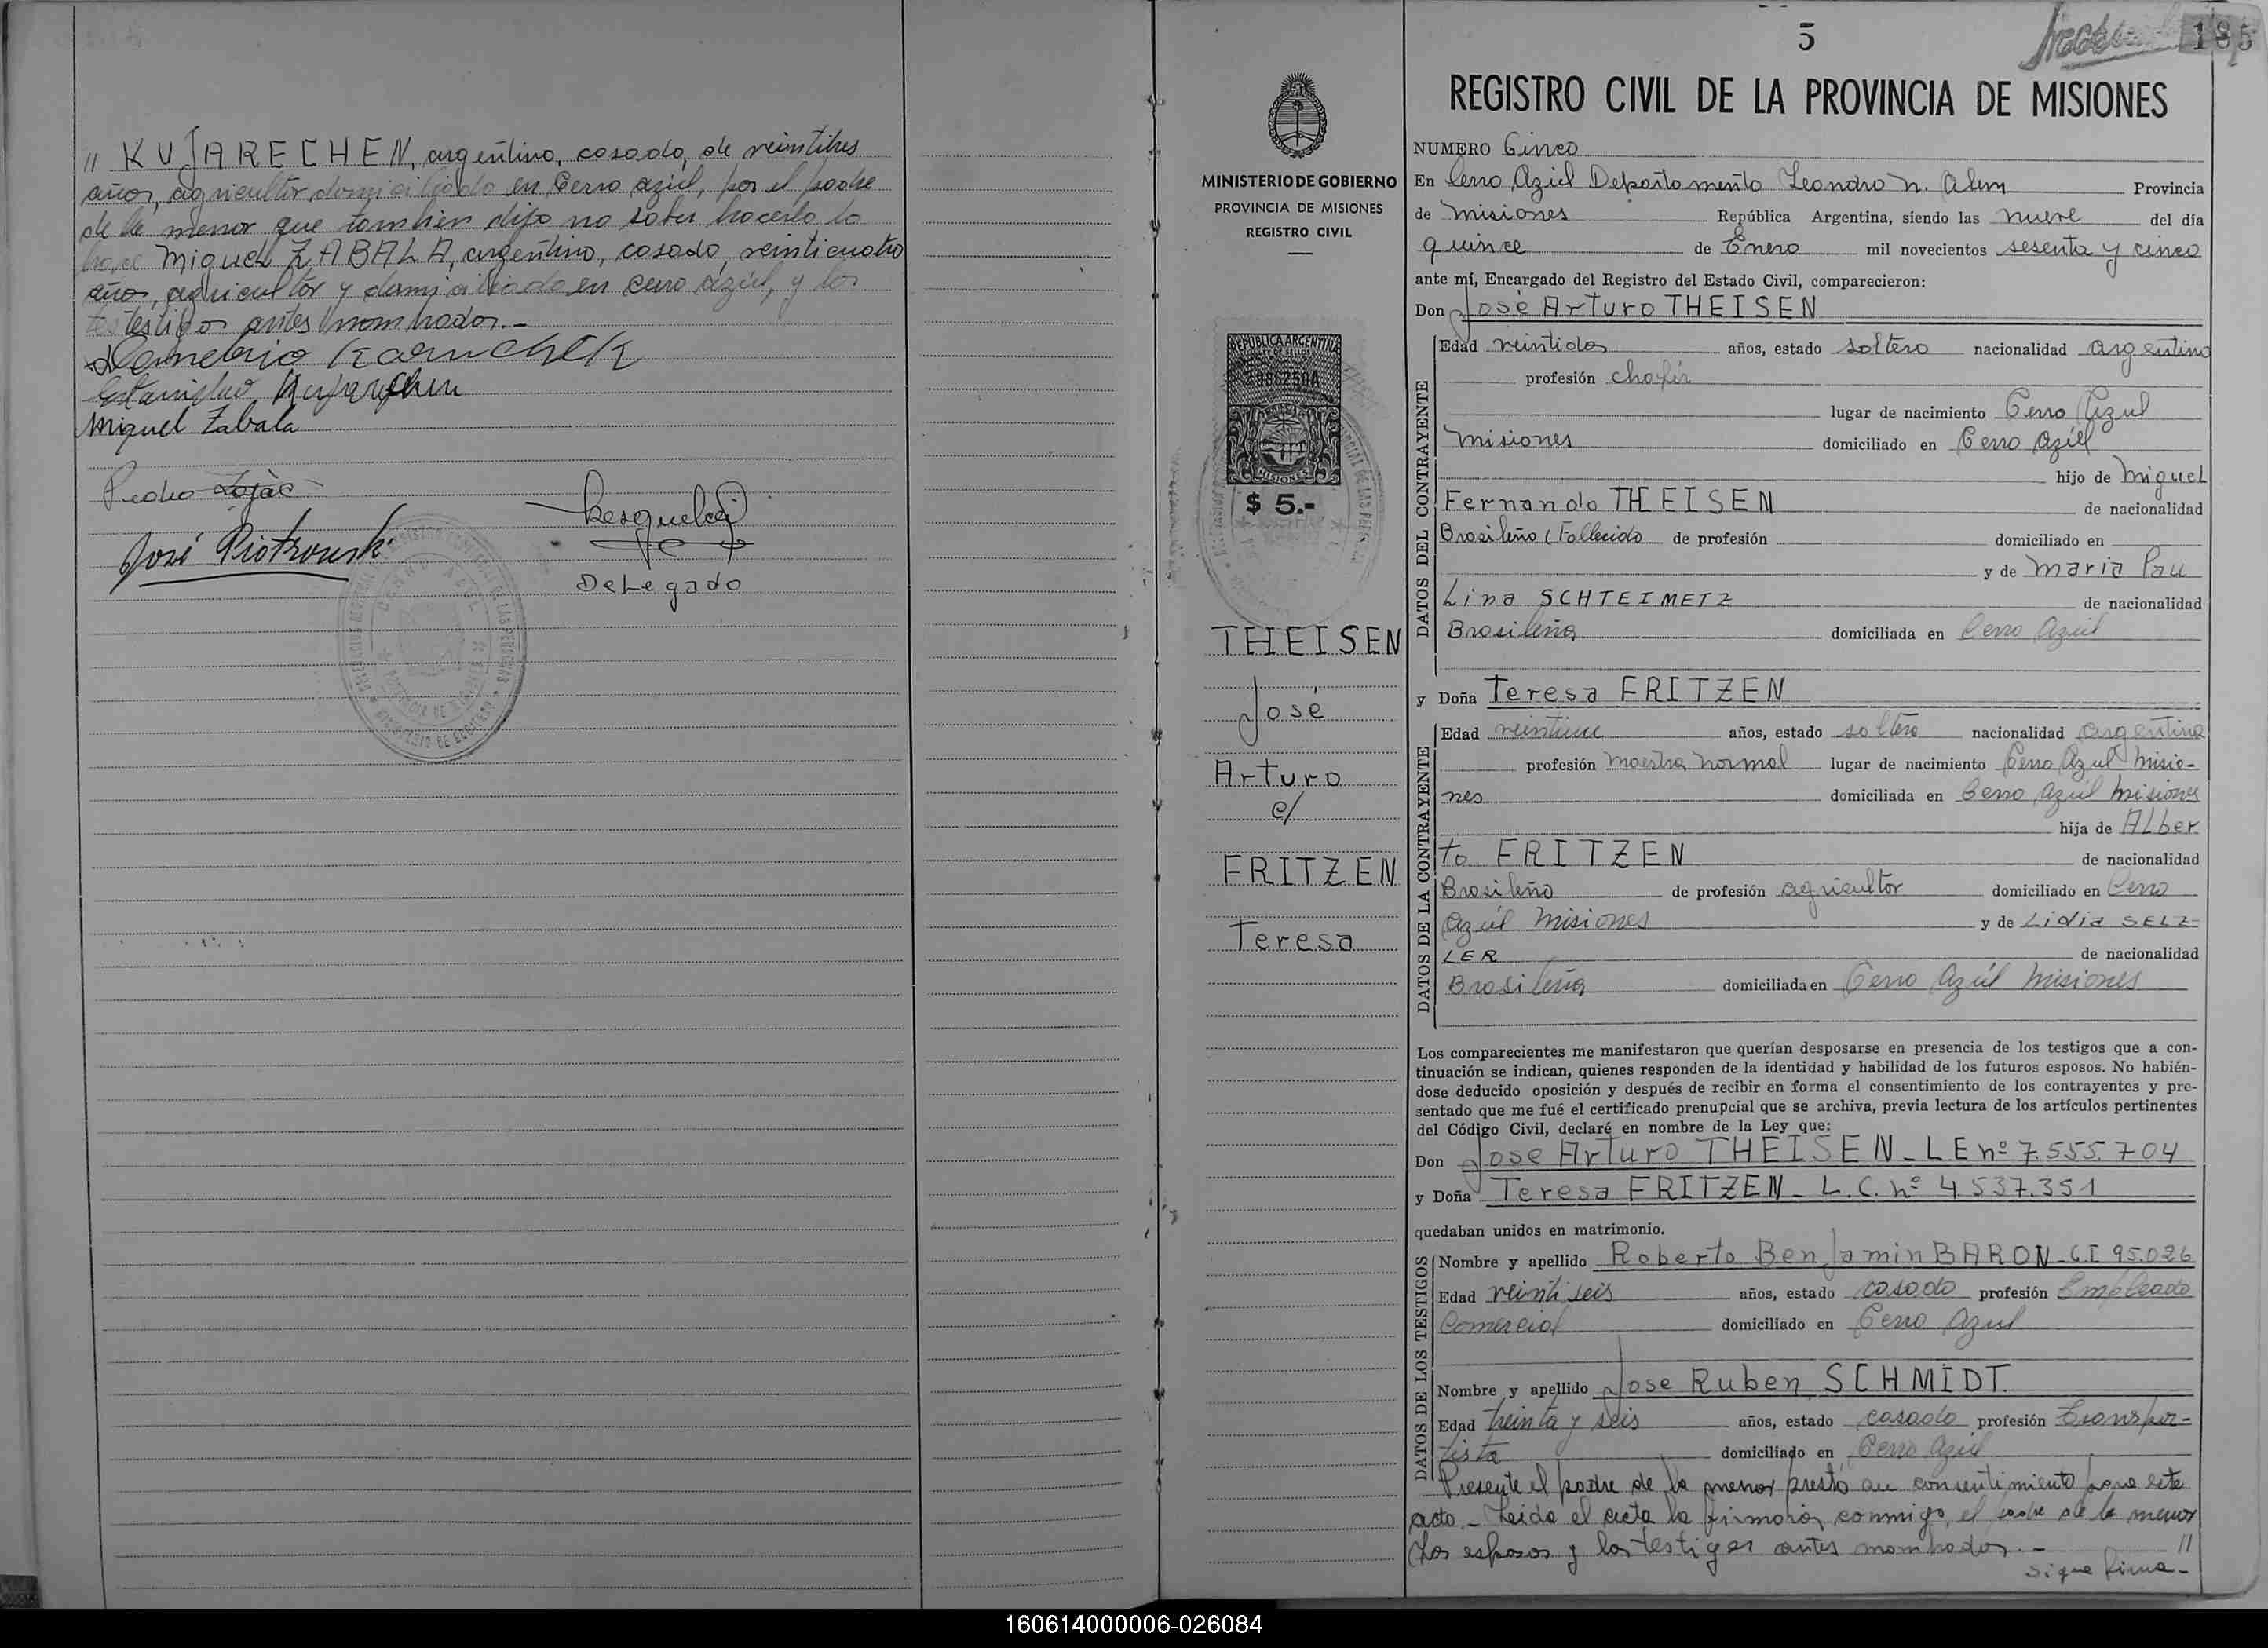 " KUJARECHEN, argentino, casado, de veintitres
años, agricultor domiciliado en Cerro azúl, por el padre
de la menor que tambien dijo no saber hacerlo lo
hace Miguel ZABALA, argentino, casado, veinticuatro
años, agricultor y domiciliado en cerro azúl, y los
testigos antes nombrados.-
Estanislao Kujarechen
Miguel Zabala
Pedro
José Piotrouski
Delegado
5
185
REGISTRO CIVIL DE LA PROVINCIA DE MISIONES
MINISTERIO DE GOBIERNO
PROVINCIA DE MISIONES
REGISTRO CIVIL
REPUBLICA ARGENTINA
MISIONES
$ 5.-
THEISEN
José
Arturo
c/
FRITZEN
Teresa
NUMERO Cinco
En Cerro Azúl Departamento Leandro N. Alem Provincia
de Misiones República Argentina, siendo las nueve del día
quince de Enero mil novecientos sesenta y cinco
ante mí, Encargado del Registro del Estado Civil, comparecieron:
Don José Arturo THEISEN
DATOS DEL CONTRAYENTE
Edad veintidos años, estado soltero nacionalidad argentina
profesión chofér
lugar de nacimiento Cerro Azul
Misiones domiciliado en Cerro Azúl
hijo de Miguel
Fernando THEISEN de nacionalidad
Brasileño (Fallecido de profesión domiciliado en
y de Maria Pau
Lina SCHTEIMETZ de nacionalidad
Brasileña domiciliada en Cerro Azúl
y Doña Teresa FRITZEN
DATOS DE LA CONTRAYENTE
Edad veintiune años, estado soltera nacionalidad argentina
profesión maestra normal lugar de nacimiento Cerro Azul Misio-
nes domiciliada en Cerro Azúl Misiones
hija de Alber
to FRITZEN de nacionalidad
Brasileño de profesión agricultor domiciliado en Cerro
Azúl Misiones y de Lidia SELZ-
LER de nacionalidad
Brasileña domiciliada en Cerro Azúl Misiones
Los comparecientes me manifestaron que querían desposarse en presencia de los testigos que a con-
tinuación se indican, quienes responden de la identidad y habilidad de los futuros esposos. No habién-
dose deducido oposición y después de recibir en forma el consentimiento de los contrayentes y pre-
sentado que me fué el certificado prenupcial que se archiva, previa lectura de los artículos pertinentes
del Código Civil, declaré en nombre de la Ley que:
Don José Arturo THEISEN - LE nº 7.555.704
y Doña Teresa FRITZEN - L.C. nº 4.537.351
quedaban unidos en matrimonio.
DATOS DE LOS TESTIGOS
Nombre y apellido Roberto Benjamin BARON - C.I 95.026
Edad veinti seis años, estado casado profesión Empleado
Comercial domiciliado en Cerro Azul
Nombre y apellido Jose Ruben SCHMIDT.
Edad treinta y seis años, estado casado profesión transpor-
tista domiciliado en Cerro Azúl
Presente el padre de la menor prestó su consentimiento para este
acto.- Leida el acta la firmarón conmigo, el padre de la menor
Los esposos y los testigos antes nombrados.- "
sigue firma-
160614000006-026084